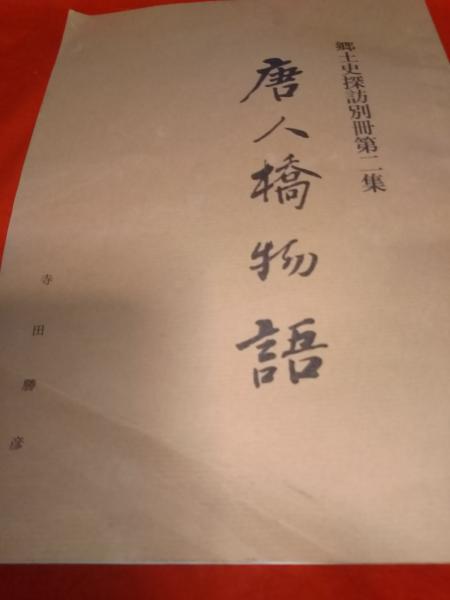 郷土史探訪別冊第二集
唐人橋物語
寺田勝彦